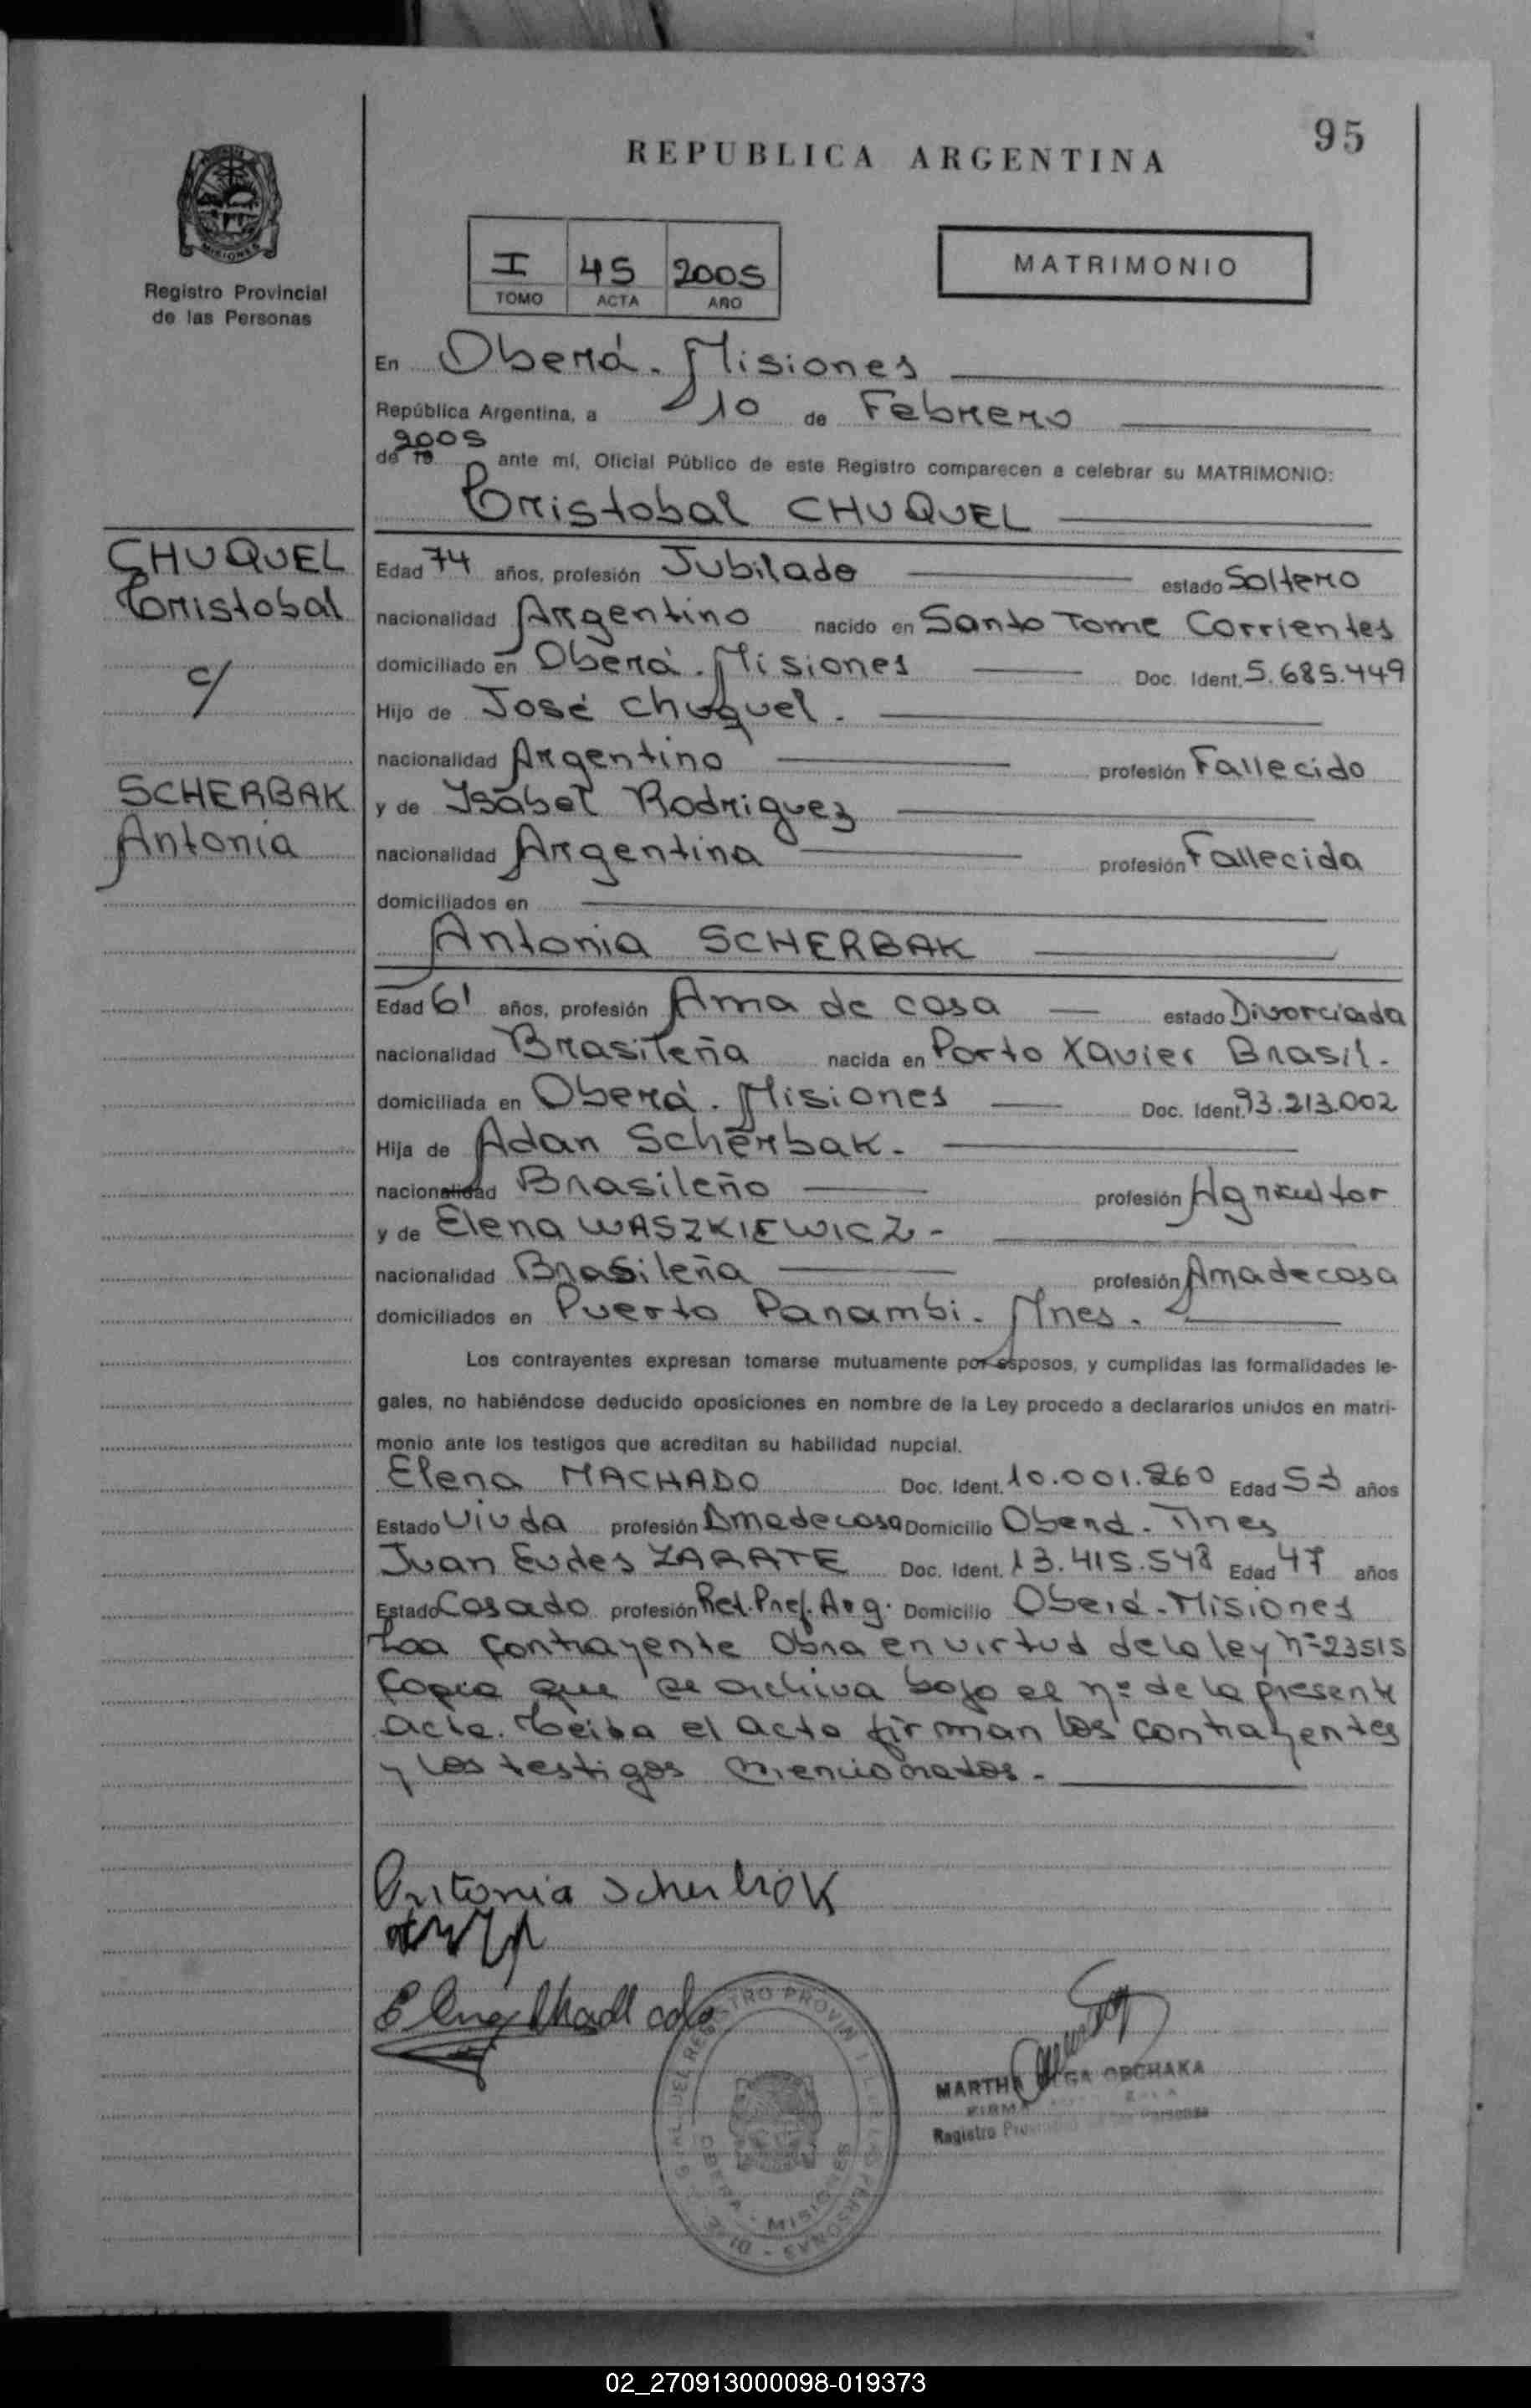 95
REPUBLICA ARGENTINA
MISIONES
Registro Provincial
de las Personas
I 45 2005
TOMO ACTA AÑO
MATRIMONIO
En Oberá. Misiones
República Argentina, a 10 de Febrero
de 19 2005 ante mí, Oficial Público de este Registro comparecen a celebrar su MATRIMONIO:
Cristobal CHUQUEL
CHUQUEL
Cristobal
c/
SCHERBAK
Antonia
Edad 74 años, profesión Jubilado estado Soltero
nacionalidad Argentino nacido en Santo Tome Corrientes
domiciliado en Oberá. Misiones Doc. Ident. 5.685.449
Hijo de José Chuquel.
nacionalidad Argentino profesión Fallecido
y de Ysabel Rodriguez
nacionalidad Argentina profesión Fallecida
domiciliados en
Antonia SCHERBAK
Edad 61 años, profesión Ama de casa estado Divorciada
nacionalidad Brasileña nacida en Porto Xavier Brasil.
domiciliada en Oberá. Misiones Doc. Ident. 93.213.002
Hija de Adan Scherbak.
nacionalidad Brasileño profesión Agricultor
y de Elena WASZKIEWICZ-
nacionalidad Brasileña profesión Ama de casa
domiciliados en Puerto Panambi. Mnes.
Los contrayentes expresan tomarse mutuamente por esposos, y cumplidas las formalidades le-
gales, no habiéndose deducido oposiciones en nombre de la Ley procedo a declararlos unidos en matri-
monio ante los testigos que acreditan su habilidad nupcial.
Elena MACHADO Doc. Ident. 10.001.260 Edad 53 años
Estado Viuda profesión Ama de casa Domicilio Oberá. Mnes
Juan Eudes ZARATE Doc. Ident. 13.415.548 Edad 47 años
Estado Casado profesión Ret. Pref. Arg. Domicilio Oberá-Misiones
Laa Contrayente Obra en virtud de la ley nº 23515
Copia que se archiva bajo el nº de la presente
acta. Leida el acta firman los contrayentes
y los testigos mencionados.
Antonia Scherbak
Elena Machado
MARTHA OLGA OBCHAKA
FIRMA
Registro
OBERA - MISIONES
02_270913000098-019373